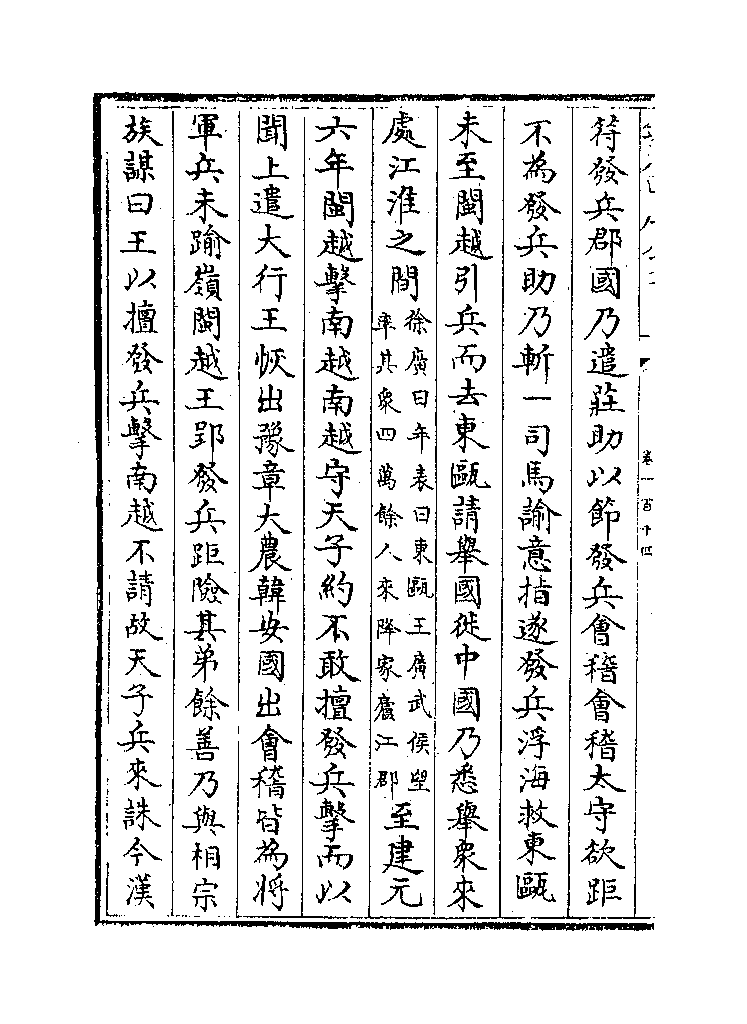 符發兵郡國乃遣莊助以節發兵會稽會稽太守欲距
不為發兵助乃斬一司馬諭意指遂發兵浮海救東甌
未至閩越引兵而去東甌請舉國徙中國乃悉舉衆來
處江淮之間徐廣曰年表曰東甌王廣武侯望率其衆四萬餘人來降家廬江郡至建元
六年閩越擊南越南越守天子約不敢擅發兵擊而以
聞上遣大行王恢出豫章大農韓安國出會稽皆為將
軍兵未踰嶺閩越王郢發兵距險其弟餘善乃與相宗
族謀曰王以擅發兵擊南越不請故天子兵來誅今漢
卷一百十四